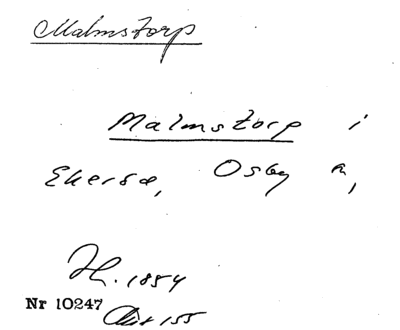 Malmstorp
Malmstorp i
Ekersa, Osby
1854
Nr 10247
155